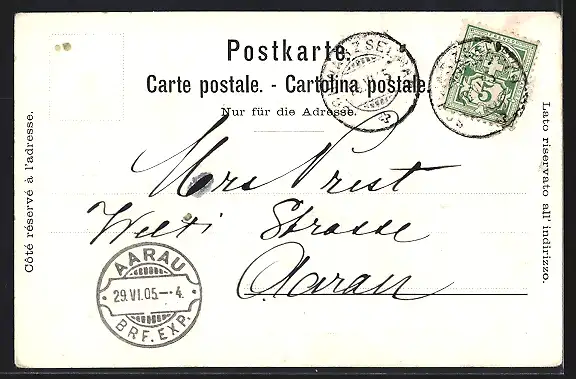 Postkarte.
Carte postale. - Cartolina postale.
Nur für die Adresse.
Côté réservé à l'adresse.
Lato riservato all' indirizzo.
5
Mrs Priest
Welti Strasse
Aarau
AARAU
29.VI.05.--4.
BRF. EXP.